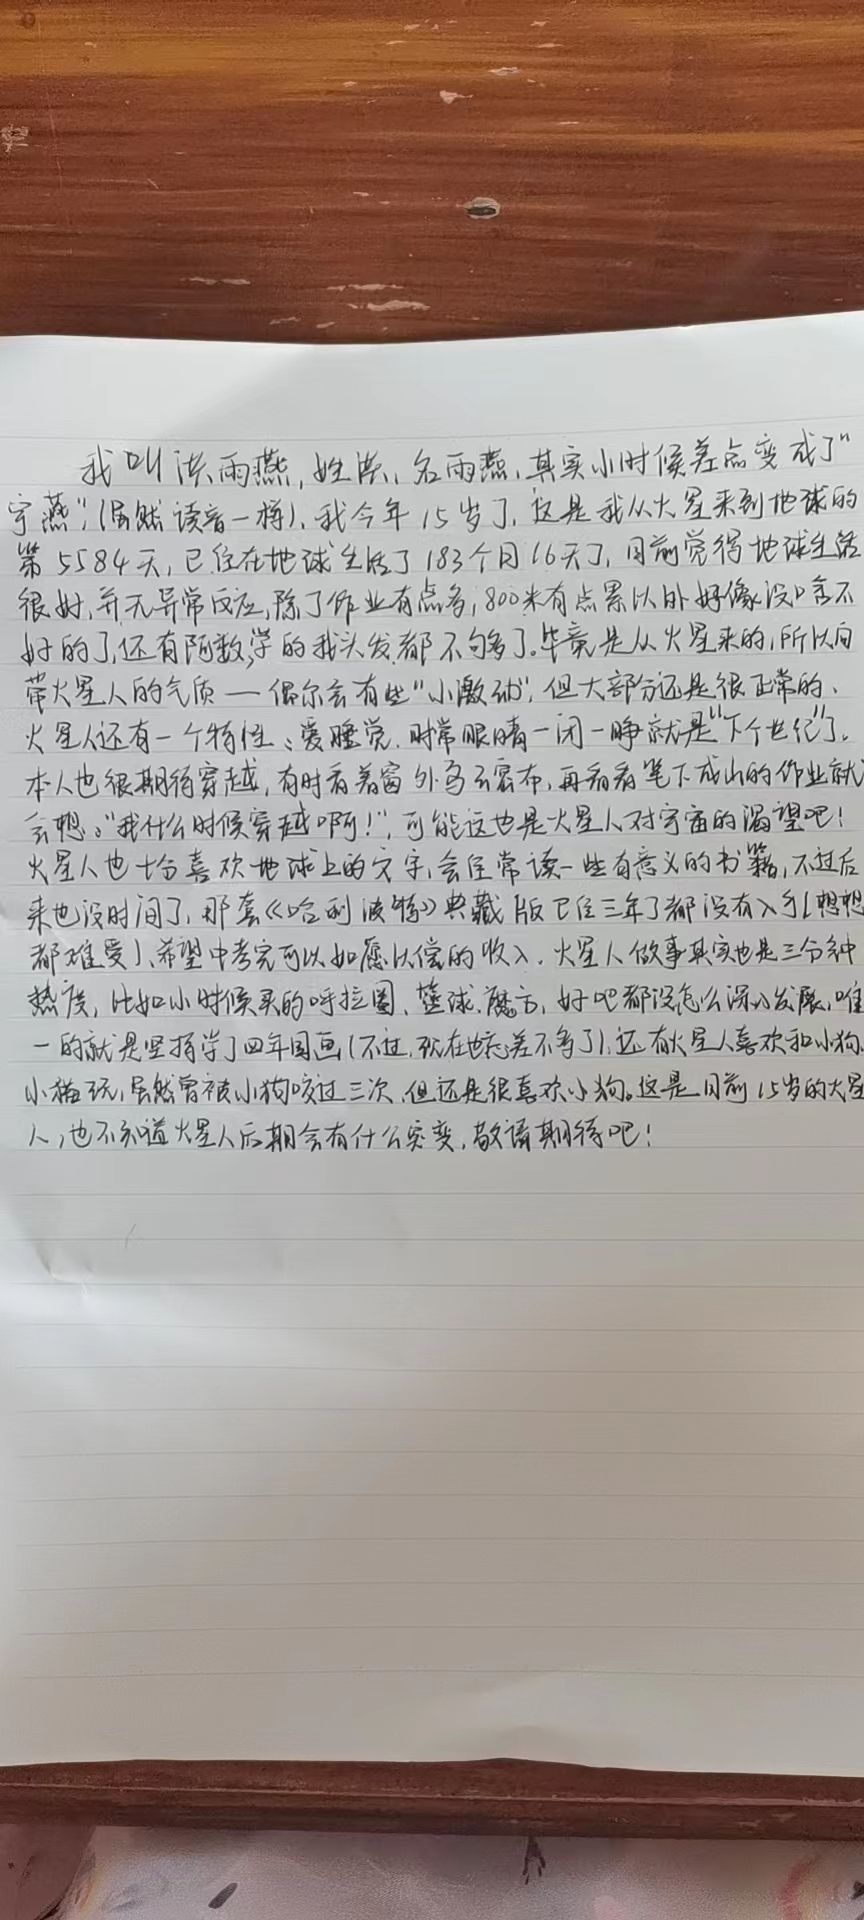 我叫洪雨燕，姓洪、名雨燕，其实小时候差点变成了“
宇燕”，（虽然读音一样）、我今年15岁了，这是我从火星来到地球的
第5584天，已经在地球生活了183个月16天了，目前觉得地球生活
很好，并无异常反应，除了作业有点多，800米有点累以外好像没啥不
好的了，还有阿数学的我头发都不够多了。毕竟是从火星来的，所以自
带火星人的气质——偶尔会有些“小激动”，但大部分还是很正常的、
火星人还有一个特性：爱睡觉．时常眼睛一闭一睁就是“下个世纪”了。
本人也很期待穿越，有时看着窗外乌云密布，再看看笔下成山的作业就
会想：“我什么时候穿越啊！”，可能这也是火星人对宇宙的渴望吧！
火星人也十分喜欢地球上的文字，会经常读一些有意义的书籍，不过后
来也没时间了，那套《哈利波特》典藏版已经三年了都没有入手（想想
都难受）、希望中考完可以如愿以偿的收入．火星人做事其实也是三分钟
热度，比如小时候买的呼拉圈、篮球、魔方，好吧都没怎么深入发展，唯
一的就是坚持学了四年国画（不过，现在也忘差不多了）、还有火星人喜欢和小狗、
小猫玩，虽然曾被小狗咬过三次，但还是很喜欢小狗。这是目前15岁的火星
人，也不知道火星人后期会有什么突变，敬请期待吧！